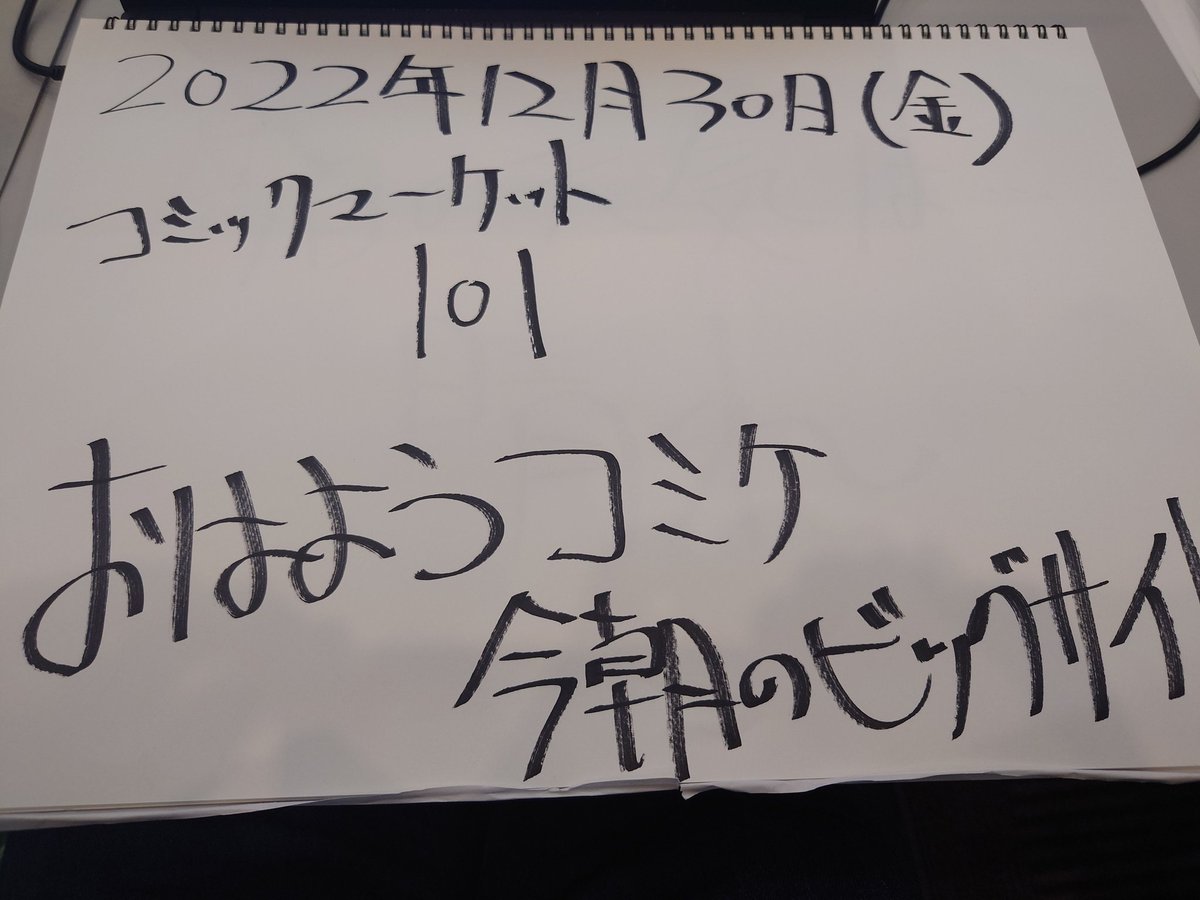 2022年12月30日(金)
コミックマーケット
101
おはようコミケ
今朝のビッグサイト